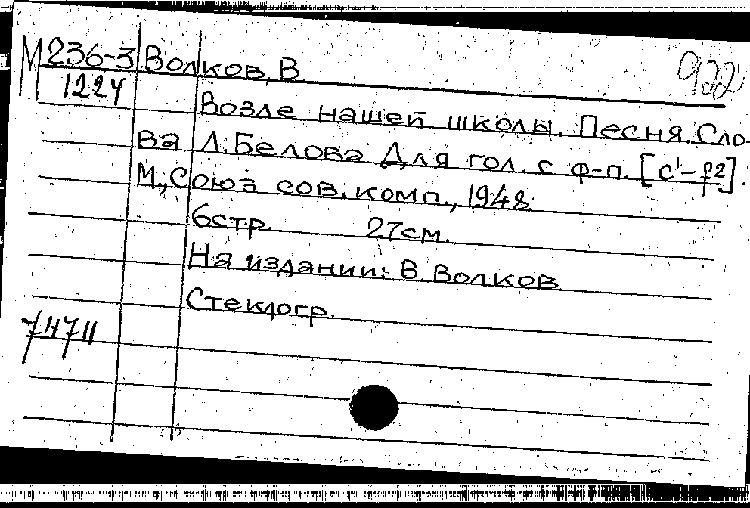 М 236-3 Волков, В
1224
922
Возле нашей школы. Песня. Сло-
ва Л. Белова Для гол. с ф-п. [c¹-f2].
М., Союз сов. комп., 1948.
6 стр. 27 см.
На издании: В. Волков
Стеклогр.
74711